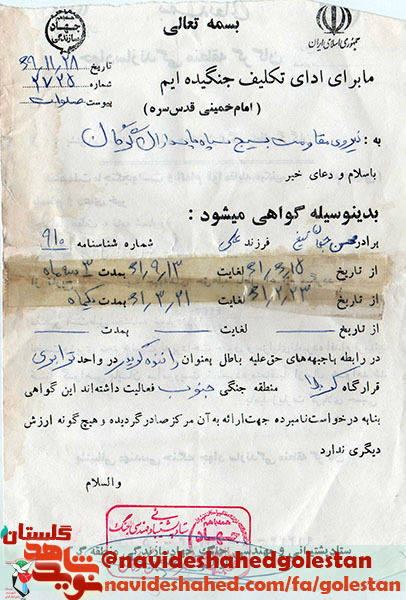 بسمه تعالی
جمهوری اسلامی ایران
همه با هم
جهاد
سازندگی
تاریخ ۶۹,۱۱,۲۸
شماره ۲۷۲۵
پیوست صلوات
ما برای ادای تکلیف جنگیده ایم
(امام خمینی قدس سره)
به : نیروی مقاومت بسیج سپاه پاسداران گرگان
باسلام و دعای خیر
بدینوسیله گواهی میشود :
برادر محسن فرزند علی شماره شناسنامه ۹۱۰
از تاریخ ۶۱,۶,۱۵ لغایت ۶۱,۹,۱۳ بمدت ۳ ماه
از تاریخ ۶۱,۲,۲۳ لغایت ۶۱,۳,۲۱ بمدت یکماه
از تاریخ لغایت بمدت
در رابطه باجبهه‌های حق علیه باطل بعنوان راننده در واحد ترابری
قرارگاه کربلا منطقه جنگی جنوب فعالیت داشته‌اند این گواهی
بنابه درخواست نامبرده جهت ارائه به آن مرکز صادر گردیده و هیچ گونه ارزش
دیگری ندارد
والسلام
همه با هم
جهاد
ستاد پشتیبانی و مهندسی جنگ جهاد سازندگی منطقه
گلستان
نوید شاهد
@navideshahedgolestan
navideshahed.com/fa/golestan